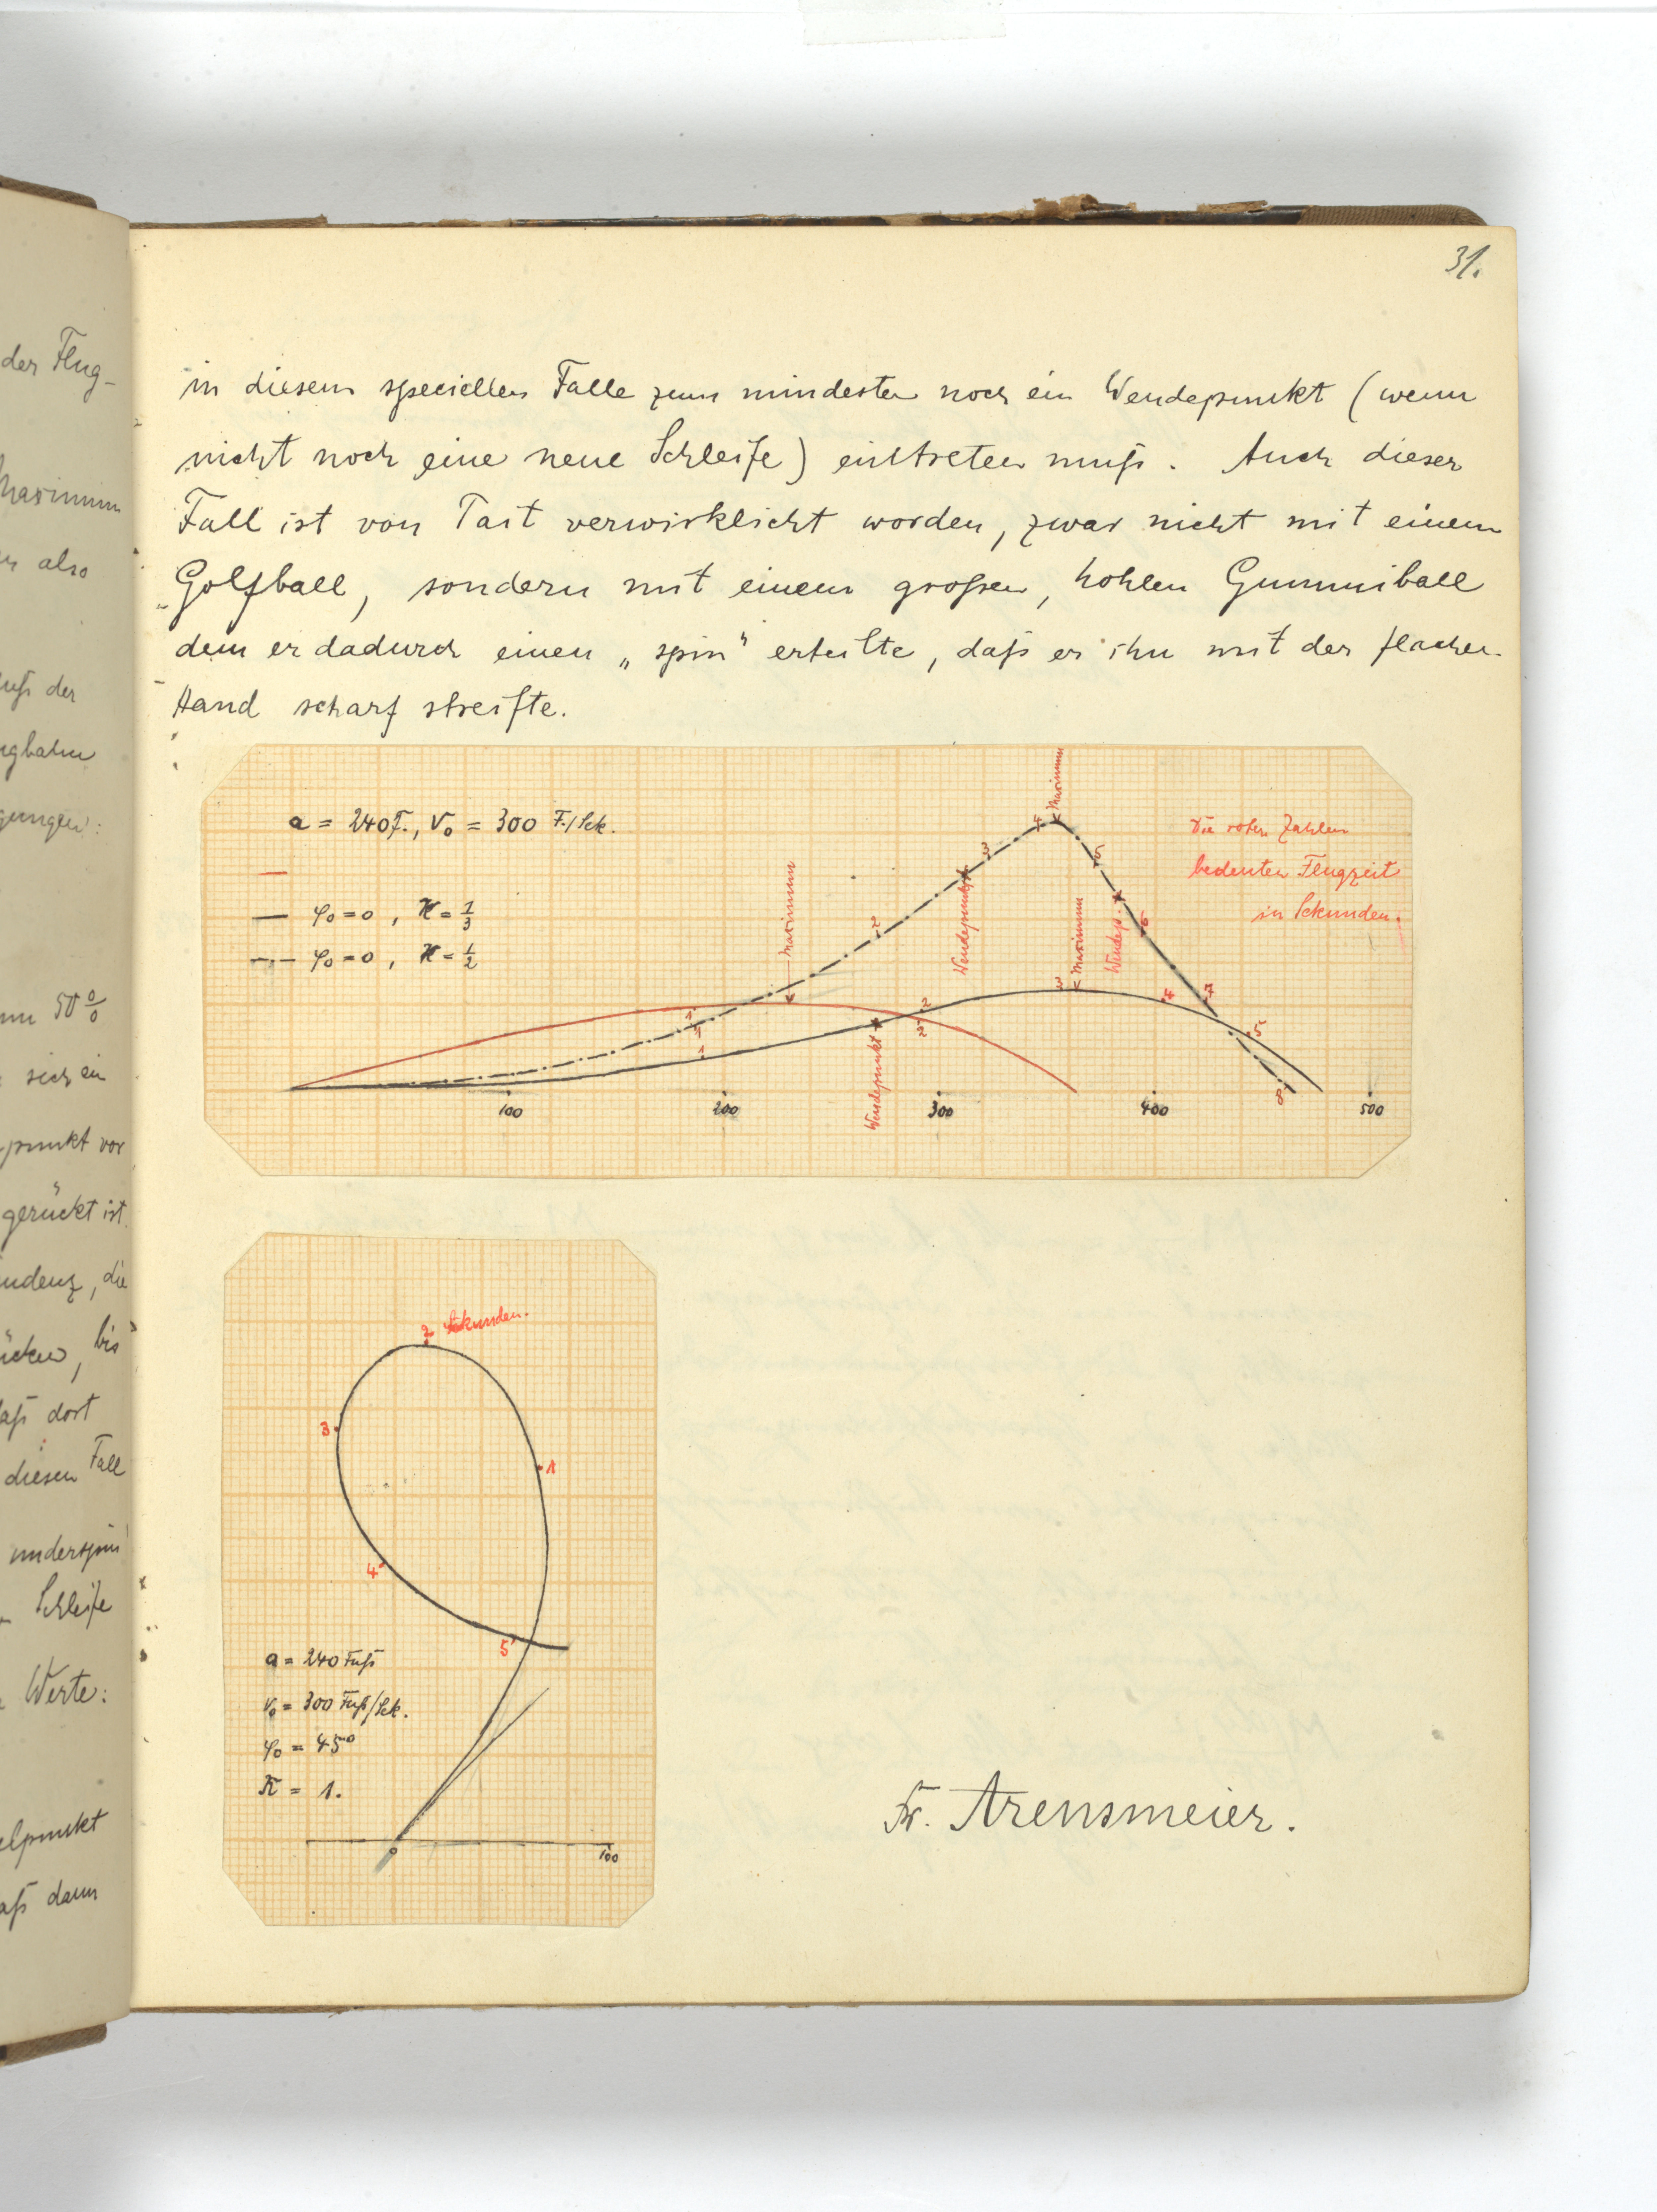 31.
der Flug-
Maximum
also
der
gungen:
50 %
sich ein
punkt vor
gerückt ist
die
bis
dort
diesen Fall
underspin
Schleife
Werte:
dann
in diesem speciellen Falle zum mindesten noch ein Wendepunkt (wenn
nicht noch eine neue Schleife) eintreten muß. Auch dieser
Fall ist von Tait verwirklicht worden, zwar nicht mit einem
Golfball, sondern mit einem großen, hohlen Gummiball
dem er dadurch einen „spin“ erteilte, daß er ihn mit der flachen
Hand scharf streifte.
a = 240 F., v₀ = 300 F./Sek.
φ₀ = 0, K = 1/3
φ₀ = 0, K = 1/2
Die roten Zahlen
bedeuten Flugzeit
in Sekunden.
Maximum
Maximum
Wendepunkt
Maximum
Wendep.
Wendepunkt
1
1
1
2
2
2
3
3
4
4
5
5
6
7
8
100
200
300
400
500
2 Sekunden.
3
1
4
5
a = 240 Fuß
v₀ = 300 Fuß/Sek.
φ₀ = 45°
K = 1.
0
100
Fr. Arensmeier.